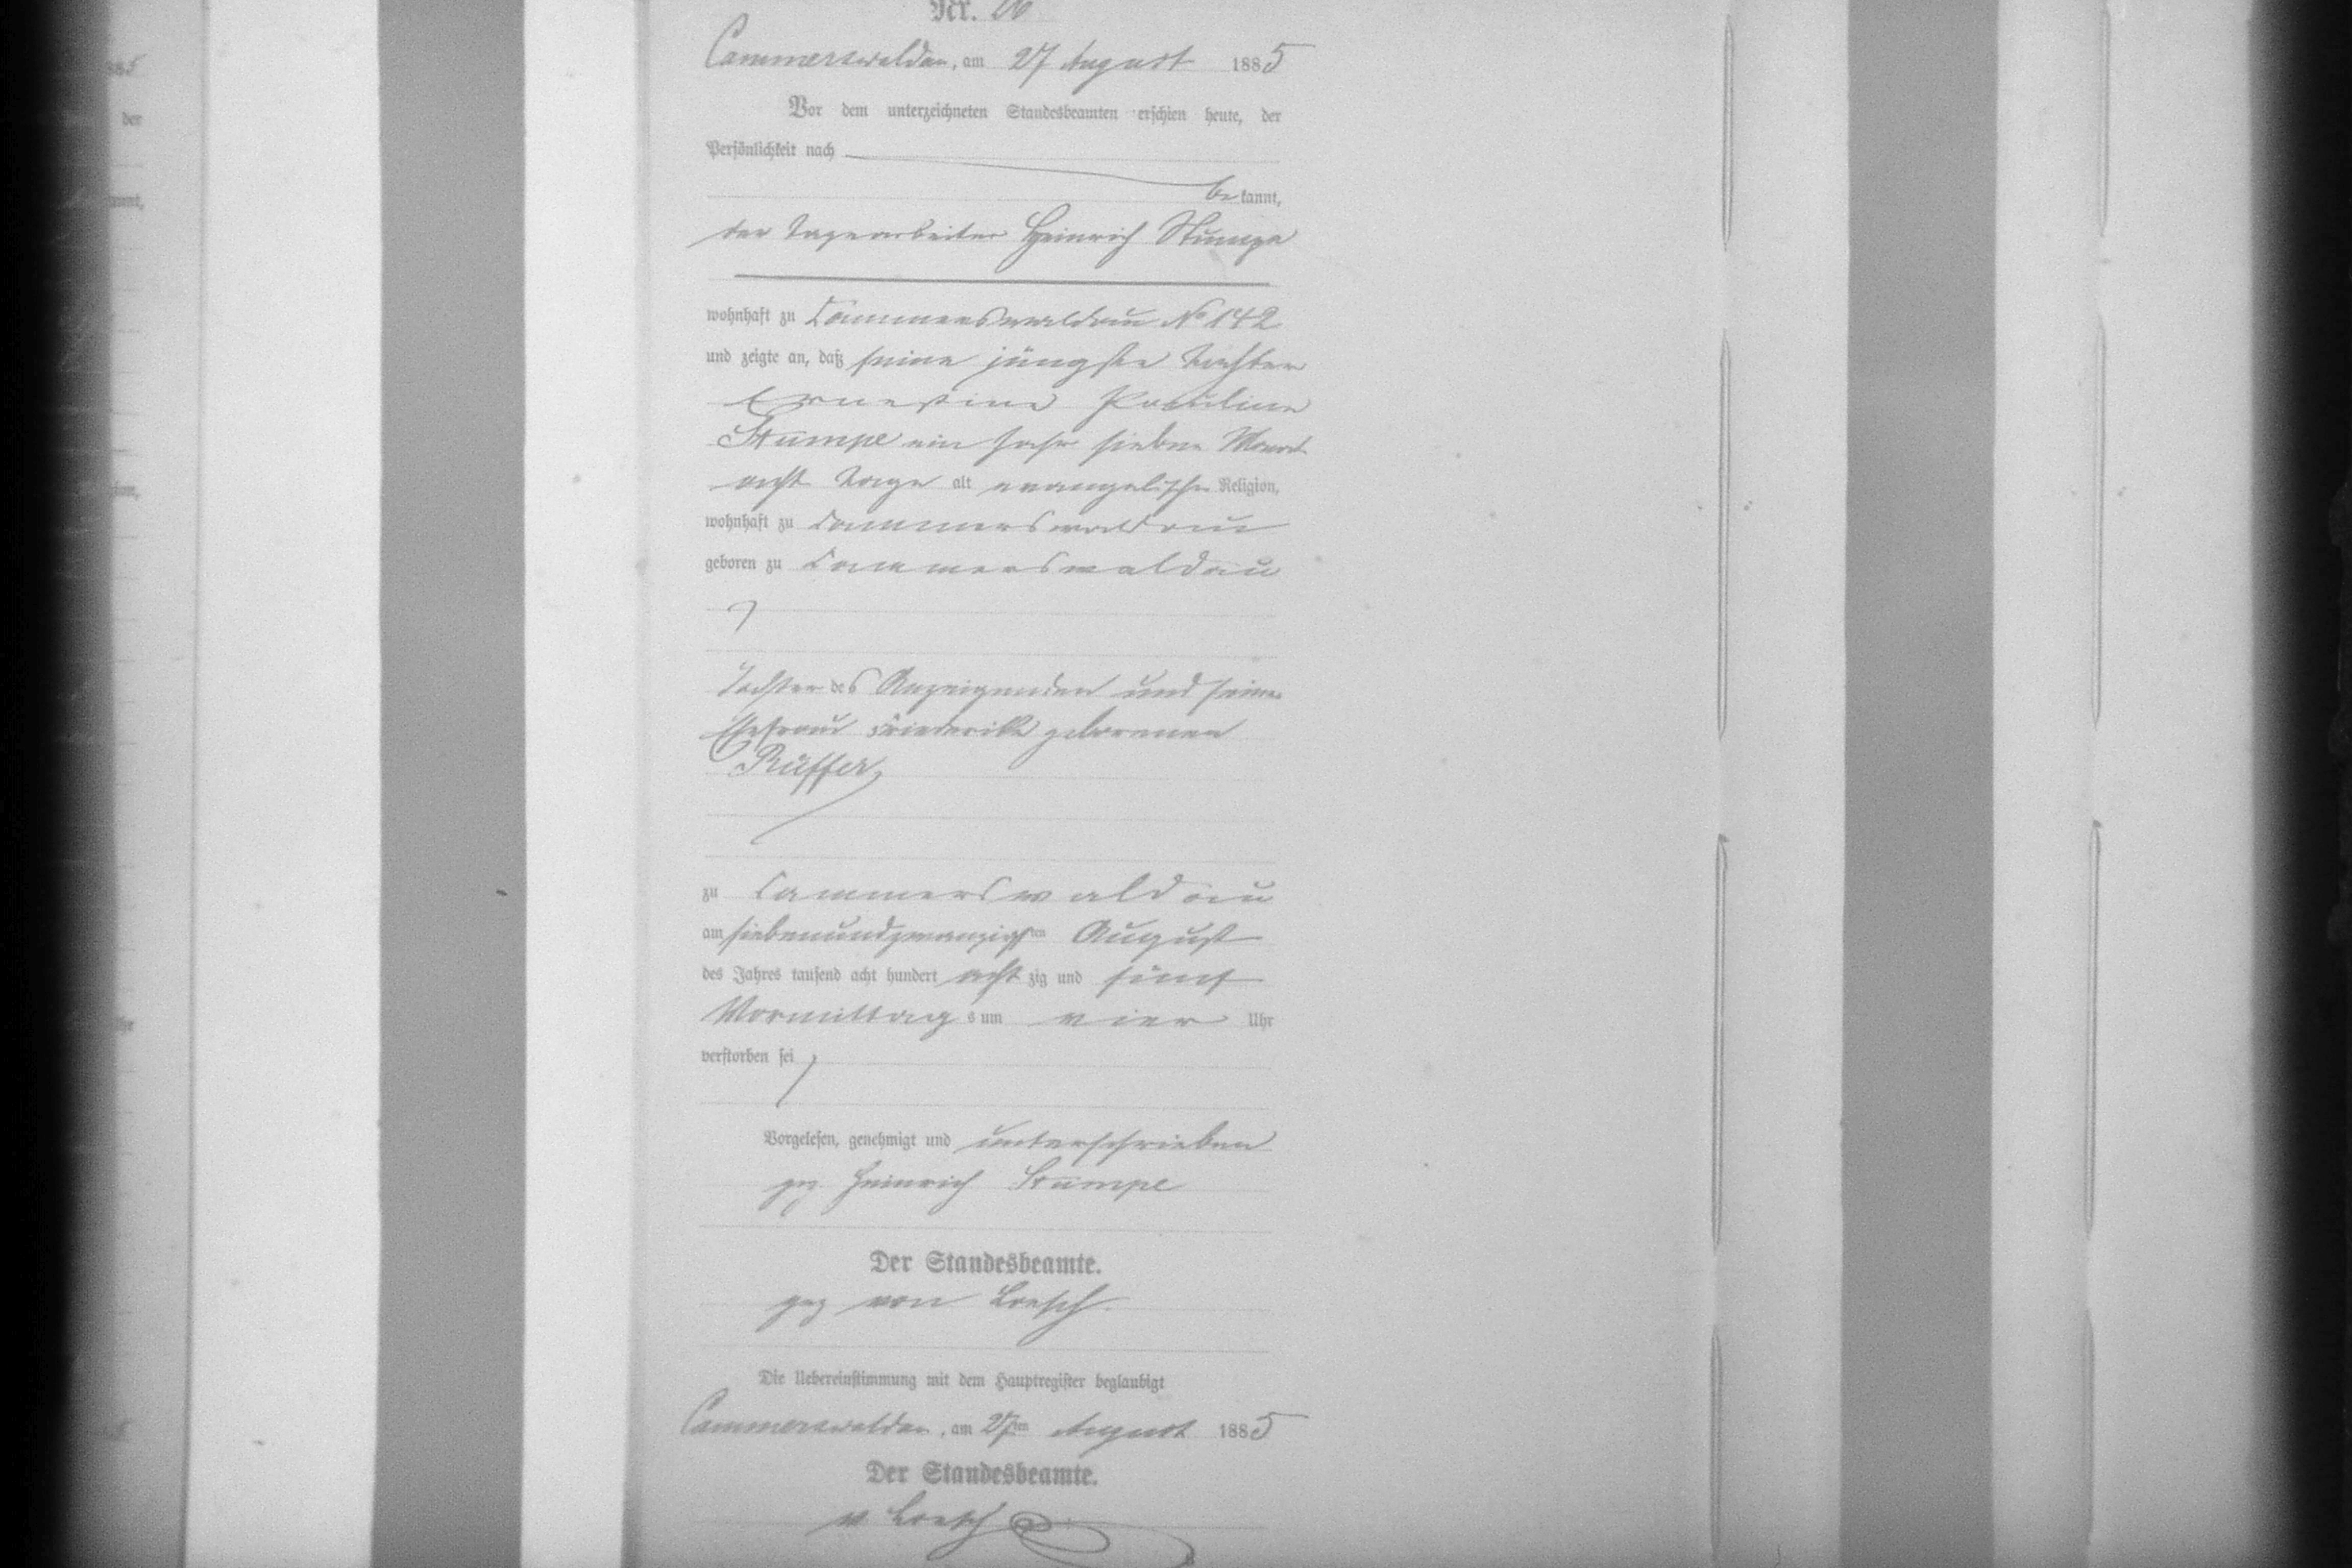 Nr. 26
Cammerswaldau, am 27 August 1885
Vor dem unterzeichneten Standesbeamten erschien heute, der
Persönlichkeit nach
bekannt,
der Tagearbeiter Heinrich Stumpe
wohnhaft zu Cammerswaldau No 142
und zeigte an, daß seine jüngste Tochter
Ernestine Pauline
Stumpe ein Jahr sieben Monat
acht Tage alt evangelischer Religion,
wohnhaft zu Cammerswaldau
geboren zu Cammerswaldau
Tochter des Anzeigenden und seiner
Ehefrau Friederike geborenen
Rüffer,
zu Cammerswaldau
am siebenundzwanzigsten August
des Jahres tausend acht hundert achtzig und fünf
Vormittags um vier Uhr
verstorben sei
Vorgelesen, genehmigt und unterschrieben
gez. Heinrich Stumpe
Der Standesbeamte.
gez von Loesch.
Die Uebereinstimmung mit dem Hauptregister beglaubigt
Cammerswaldau, am 27ten August 1885
Der Standesbeamte.
v Loesch